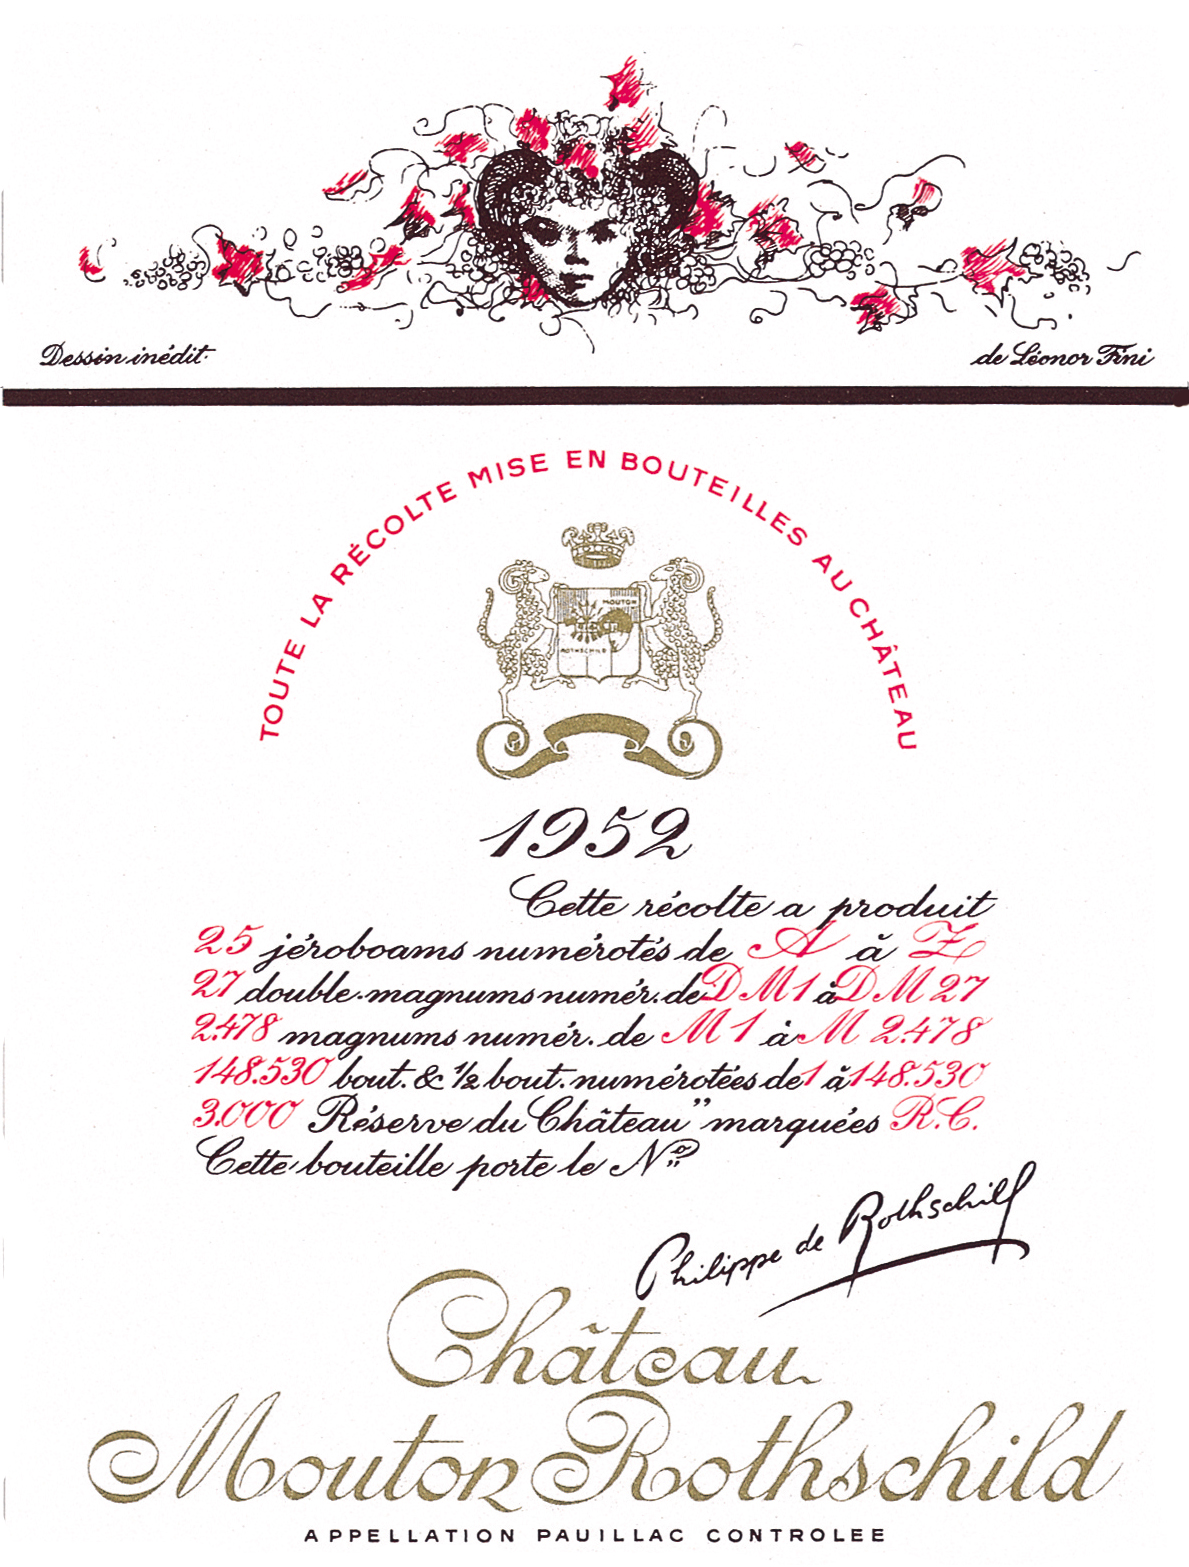 Dessin inédit
de Léonor Fini
TOUTE LA RÉCOLTE MISE EN BOUTEILLES AU CHÂTEAU
MOUTON
ROTHSCHILD
1952
Cette récolte a produit
25 jéroboams numérotés de A à Z
27 double-magnums numér. de DM1 à DM27
2.478 magnums numér. de M1 à M 2.478
148.530 bout. & 1/2 bout. numérotées de 1 à 148.530
3.000 Réserve du Château" marquées R.C.
Cette bouteille porte le Nº
Philippe de Rothschild
Château
Mouton Rothschild
APPELLATION PAUILLAC CONTROLEE